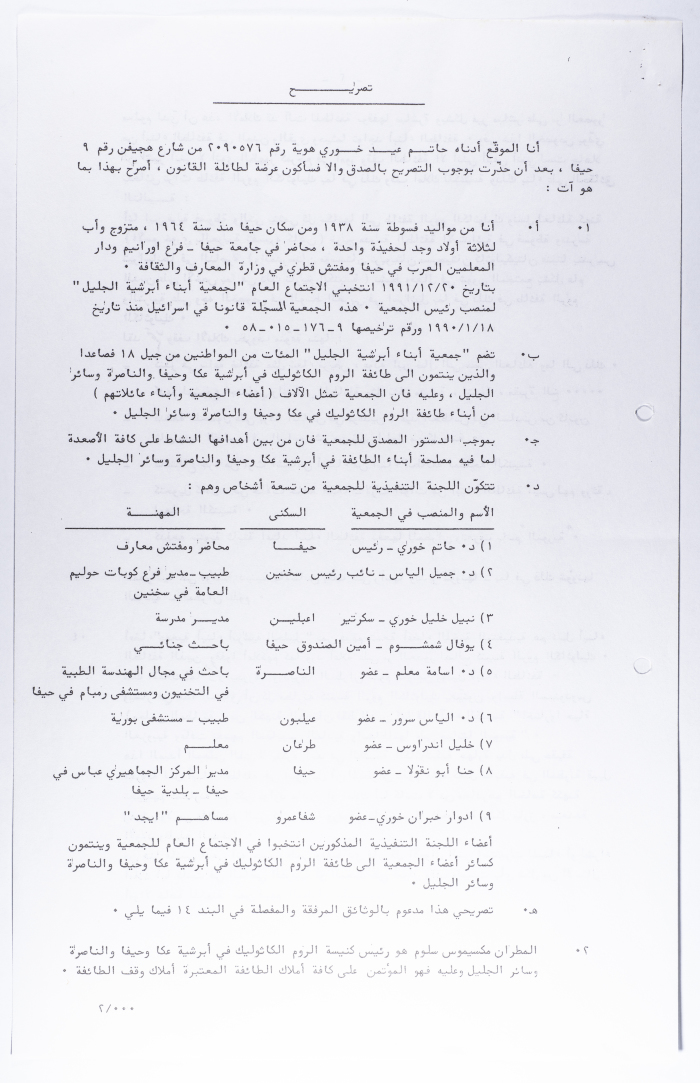 تصريــــــــح
أنا الموقّع أدناه حاتــم عيــد خــوري هوية رقم ٢٠٩٠٥٧٦ من شارع هجيفن رقم ٩
حيفا ، بعد أن حذّرت بوجوب التصريح بالصدق والا فسأكون عرضة لطائلة القانون ، أصرّح بهذا بما
هو آت :
١٠ أ٠ أنا من مواليد فسوطة سنة ١٩٣٨ ومن سكان حيفا منذ سنة ١٩٦٤ ، متزوج وأب
لثلاثة أولاد وجد لحفيدة واحدة ، محاضر في جامعة حيفا ـ فرع اورانيم ودار
المعلمين العرب في حيفا ومفتش قطري في وزارة المعارف والثقافة ٠
بتاريخ ١٩٩١/١٢/٢٠ انتخبني الاجتماع العام "لجمعية أبناء أبرشية الجليل"
لمنصب رئيس الجمعية ٠ هذه الجمعية المسجّلة قانونا في اسرائيل منذ تاريخ
١٩٩٠/١/١٨ ورقم ترخيصها ٩-١٧٦-٠١٥-٥٨ ٠
ب٠ تضم "جمعية أبناء أبرشية الجليل" المئات من المواطنين من جيل ١٨ فصاعدا
والذين ينتمون الى طائفة الروم الكاثوليك في أبرشية عكا وحيفا والناصرة وسائر
الجليل ، وعليه فان الجمعية تمثل الآلاف ( أعضاء الجمعية وأبناء عائلاتهم )
من أبناء طائفة الروم الكاثوليك في عكا وحيفا والناصرة وسائر الجليل ٠
ج٠ بموجب الدستور المصدق للجمعية فان من بين أهدافها النشاط على كافة الأصعدة
لما فيه مصلحة أبناء الطائفة في أبرشية عكا وحيفا والناصرة وسائر الجليل ٠
د٠ تتكوّن اللجنة التنفيذية للجمعية من تسعة أشخاص وهم :
الأسم والمنصب في الجمعية السكنى المهنــة
١) د٠ حاتم خوري ـ رئيس حيفــا محاضر ومفتش معارف
٢) د٠ جميل الياس ـ نائب رئيس سخنين طبيب ـ مدير فرع كوبات حوليم
العامة في سخنين
٣) نبيل خليل خوري ـ سكرتير اعبليــن مديــر مدرسة
٤) يوفال شمشــوم ـ أمين الصندوق حيفا باحــث جنائــي
٥) د٠ اسامة معلم ـ عضو الناصــرة باحث في مجال الهندسة الطبية
في التخنيون ومستشفى رمبام في حيفا
٦) د٠ الياس سرور ـ عضو عيلبون طبيب ـ مستشفى بورية
٧) خليل اندراوس ـ عضو طرعان معلــم
٨) حنا أبو نقولا ـ عضو حيفا مدير المركز الجماهيري عباس في
حيفا ـ بلدية حيفا
٩) ادوار جبران خوري ـ عضو شفاعمرو مساهــم "ايجد"
أعضاء اللجنة التنفيذية المذكورين انتخبوا في الاجتماع العام للجمعية وينتمون
كسائر أعضاء الجمعية الى طائفة الروم الكاثوليك في أبرشية عكا وحيفا والناصرة
وسائر الجليل ٠
هـ٠ تصريحي هذا مدعوم بالوثائق المرفقة والمفصلة في البند ١٤ فيما يلي ٠
٢٠ المطران مكسيموس سلوم هو رئيس كنيسة الروم الكاثوليك في أبرشية عكا وحيفا والناصرة
وسائر الجليل وعليه فهو المؤتمن على كافة أملاك الطائفة المعتبرة أملاك وقف الطائفة ٠
٢/٠٠٠